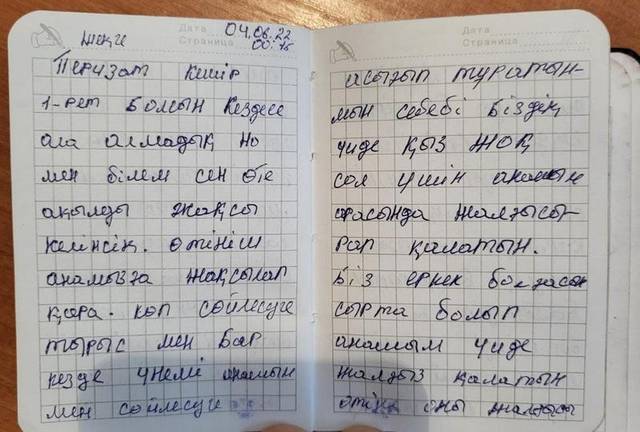 Дата 04.06.22
жеңге
Страница 00:15
Перизат кешір
1-рет болсын кездесе
ала алмадық но
мен білем сен өте
ақылды жақсы
келінсің. өтініш
анамызға жақсылап
қара. көп сөйлесуге
тырыс мен бар
кезде үнемі анамын
мен сөйлесуге
Дата
Страница
асығып тұратын-
мын себебі біздің
үиде қыз жоқ
сол үшін анамын
арасында жалғысы-
рап қалатын.
біз еркек болғасын
сырта болып
анашым үиде
жалғыз қалатын
өтініш оны жалғызы